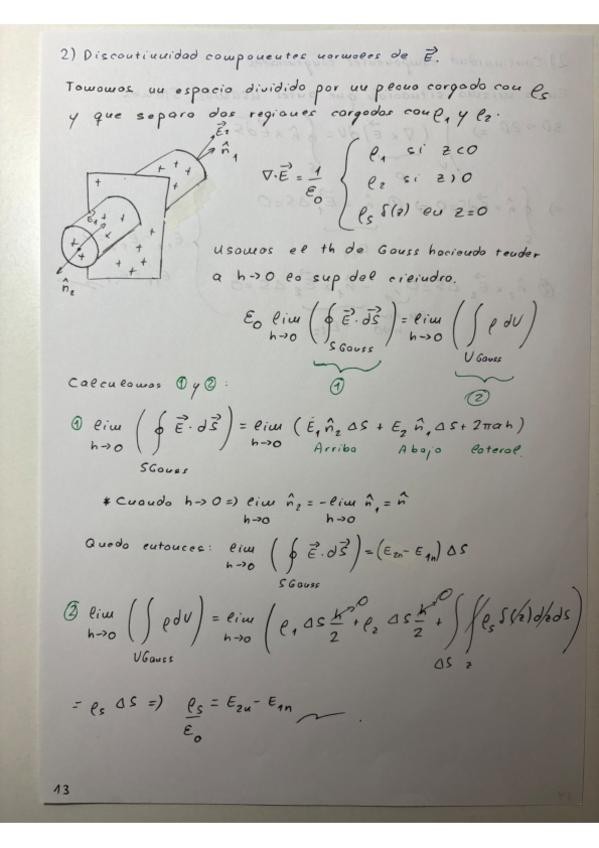 2) Discontinuidad componentes normales de E⃗.
Tomamos un espacio dividido por un plano cargado con ρs
y que separa dos regiones cargadas con ρ1 y ρ2.
E⃗2
n̂1
E⃗1
n̂2
∇·E⃗ = 1/ε0 { ρ1 si z<0
ρ2 si z>0
ρs δ(z) en z=0
usamos el th de Gauss haciendo tender
a h→0 la sup del cilindro.
ε0 lim h→0 ( ∮ SGauss E⃗·dS⃗ ) = lim h→0 ( ∫ VGauss ρ dV )
① ②
Calculamos ① y ②:
① lim h→0 ( ∮ SGauss E⃗·dS⃗ ) = lim h→0 ( E1 n̂2 ΔS + E2 n̂1 ΔS + 2πah )
Arriba Abajo lateral.
* Cuando h→0 => lim h→0 n̂2 = - lim h→0 n̂1 = n̂
Queda entonces: lim h→0 ( ∮ SGauss E⃗·dS⃗ ) = (E2n - E1n) ΔS
② lim h→0 ( ∫ VGauss ρ dV ) = lim h→0 ( ρ1 ΔS h/2 →0 + ρ2 ΔS h/2 →0 + ∫ΔS ∫z ρs δ(z) dz ds )
= ρs ΔS => ρs/ε0 = E2n - E1n
13